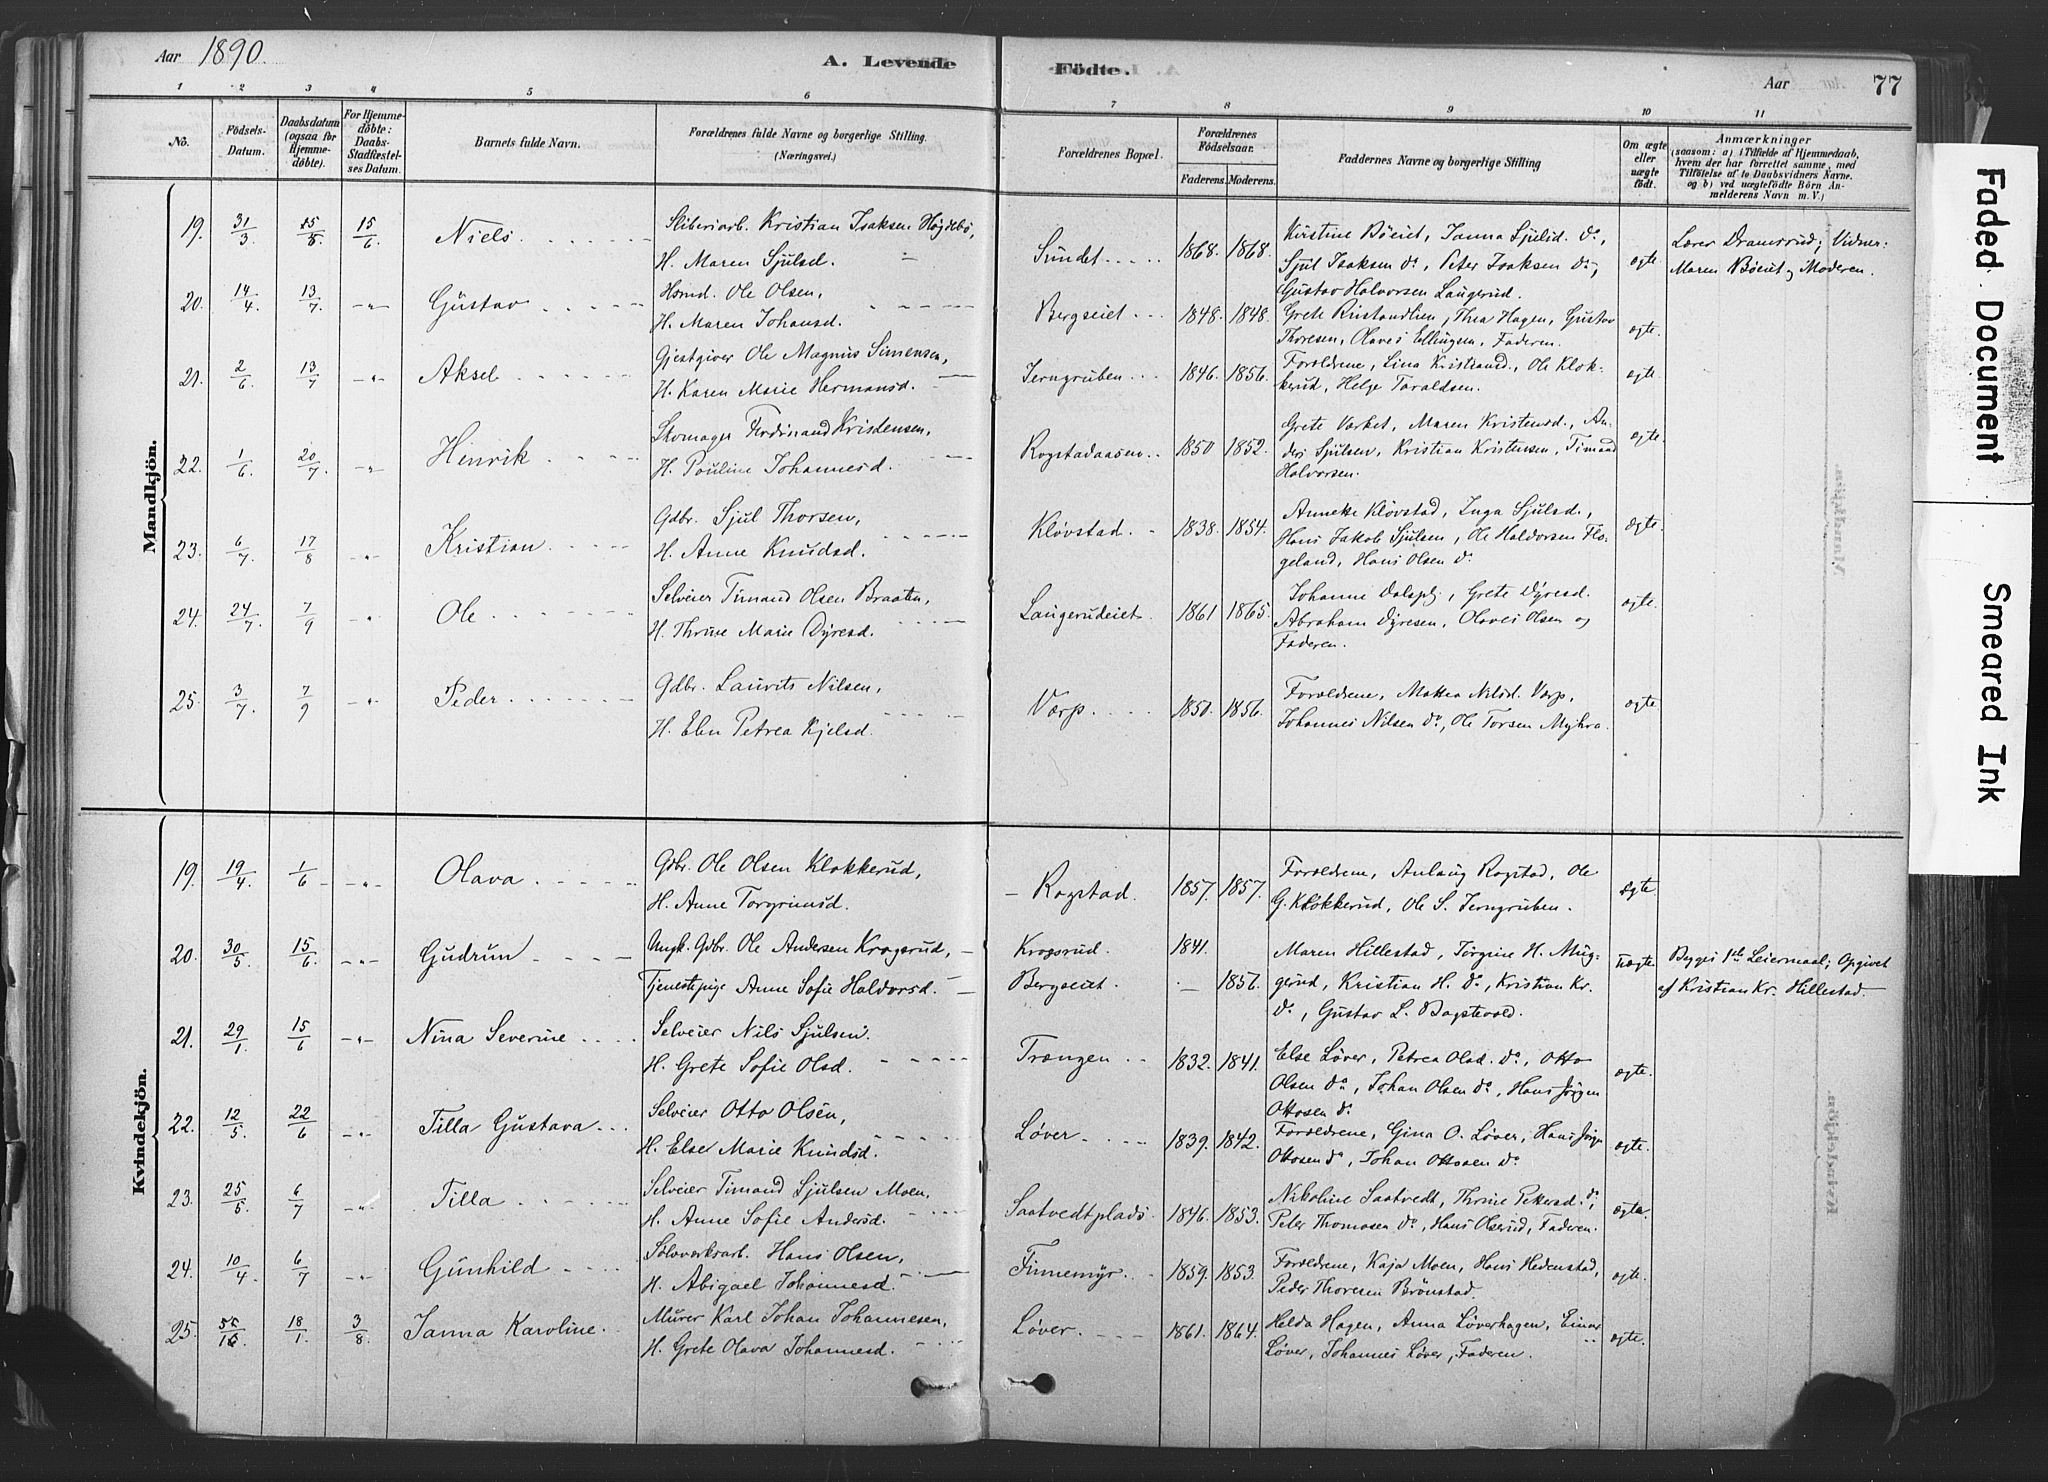 Aar 1890.
A. Levende Födte.
Aar 77
1 2 3 4 5 6 7 8 9 10 11
No.
Födsels-Datum.
Daabsdatum (ogsaa for Hjemme-döbte).
For Hjemme-döbte: Daabs-Stadfæstel-ses Datum.
Barnets fulde Navn.
Forældrenes fulde Navne og borgerlige Stilling.
(Næringsvei.)
Forældrenes Bopæl.
Forældrenes Födselsaar.
Faderens. Moderens.
Faddernes Navne og borgerlige Stilling
Om ægte eller uægte födt.
Anmærkninger
(saasom: a) i Tilfælde af Hjemmedaab,
hvem der har forrettet samme, med
Tilföielse af to Daabsvidners Navne.
og b) ved uægtefödte Börn An-
melderens Navn m. V.)
Mandkjön.
19. 31/3 15/6 Niels
Kristian Isaksen Høgdebø,
H. Maren Sjulsd.
Sundet 1868. 1868.
Kirstine Böeiet, Janna Sjulsd. do,
Sjul Isaksen do, Peter Isaksen do,
Gustav Halvorsen Laugerud.
ægte
Lærer Dramsrud; Vidner:
Maren Böeiet og Moderen.
20. 14/4 13/7 -"- Gustav
Husmd. Ole Olsen,
H. Maren Johansd.
Bergseiet 1848. 1848.
Grete Ristandlien, Thea Hagen, Gustav
Thoresen, Olaves Ellingsen, Faderen.
ægte.
21. 2/6 13/7 -"- Aksel
Gjestgiver Ole Magnus Simensen,
H. Karen Marie Hermansd.
Jerngruben 1846. 1856.
Forældrene, Lina Kristiansd., Ole Klok-
kerud, Helge Taraldsen.
ægte.
22. 1/6 20/7 -"- Henrik
Skomager Ferdinand Kristensen,
H. Pouline Johannesd.
Rogstadaasen 1850 1852.
Grete Vorket, Maren Kristensd., An-
ders Sjulsen, Kristian Kristensen, Timand
Halvorsen.
ægte.
23. 6/7 17/8 -"- Kristian
Gdbr. Sjul Thorsen,
H. Anne Knudsd.
Kløvstad 1838. 1854.
Anneke Kløvstad, Inga Sjulsd.,
Hans Jakob Sjulsen, Ole Haldorsen Flo-
geland, Hans Olsen do
Ægte.
24. 24/7 7/9 -"- Ole
Selveier Timand Olsen Braaten,
H. Thrine Marie Dyresd.
Laugerudeiet 1861 1865.
Johanne Dalspl., Grete Dyresd.
Abraham Dyresen, Olaves Olsen og
Faderen.
ægte.
25. 3/7 7/9 -"- Peder
Gdbr. Laurits Nilsen,
H. Elen Petrea Kjelsd.
Værp 1850. 1856.
Forældrene, Mattea Nilsd. Værp,
Johannes Nilsen do, Ole Torsen Myhra.
ægte.
Kvindekjön.
19. 19/4 1/6 -"- Olava
Gdbr. Ole Olsen Klokkerud,
H. Anne Torgrimsd.
Rogstad. 1857. 1857.
Forældrene, Anlaug Rogstad, Ole
G. Klokkerud, Ole S. Jerngruben.
Ægte.
20. 30/5 15/6 -"- Gudrun
Ungk. Gdbr. Ole Andersen Krogsrud,
Tjenestepige Anne Sofie Haldorsd.
Krogsrud. 1841.
Bergseiet. 1856.
Maren Hillestad, Jørgine H. Mug-
gerud, Kristian H. do, Kristian Kr.
do, Gustav L. Bagstevold.
uægte.
Begges 1ste Leiermaal; Opgivet
af Kristian Kr. Hillestad.
21. 29/1 15/6 -"- Nina Severine
Selveier Nils Sjulsen.
H. Grete Sofie Olsd.
Trængen 1832. 1841.
Else Løver, Petrea Olsd. do, Otto
Olsen do, Johan Olsen do, Hans Jørgen
Ottosen do
ægte.
22. 12/5 22/6 -"- Tilla Gustava
Selveier Otto Olsen,
H. Else Marie Knudsd.
Løver 1839. 1842.
Forældrene, Gina O. Løver, Hans Jørgen
Ottosen do, Johan Ottosen do
ægte.
23. 25/5 6/7 -"- Tilla
Selveier Timand Sjulsen Moen,
H. Anne Sofie Andersd.
Saatvedtplads 1846. 1853.
Nikoline Saatvedt, Thrine Petersd. do,
Peter Thomasen do, Hans Olserud, Faderen.
ægte.
24. 10/4 6/7 -"- Gunhild
Sølvverksarb. Hans Olsen,
H. Abigael Johannesd.
Finnemyr 1859. 1853.
Forældrene, Kaja Moen, Hans Hedenstad,
Peder Thoresen Brønstad.
ægte.
25. 18/1 3/8 Janna Karoline.
Murer Karl Johan Johannesen,
H. Grete Olava Johannesd.
Løver 1861. 1864.
Helda Hagen, Anna Løverhagen, Einar
Løver, Johannes Løver, Faderen.
ægte.
Faded Document
Smeared Ink